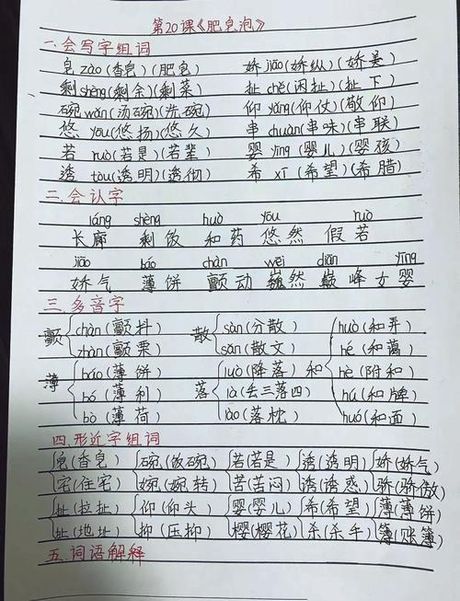 第20课《肥皂泡》
一.会写字组词
皂 zào (香皂)(肥皂) 娇 jiāo (娇纵)(娇美)
剩 shèng (剩余)(剩菜) 扯 chě (闲扯)(扯下)
碗 wǎn (汤碗)(洗碗) 仰 yǎng (仰仗)(敬仰)
悠 yōu (悠扬)(悠久) 串 chuàn (串味)(串联)
若 ruò (若是)(若辈) 婴 yīng (婴儿)(婴孩)
透 tòu (透明)(透彻) 希 xī (希望)(希腊)
二.会认字
láng shèng huò yōu ruò
长廊 剩饭 和药 悠然 假若
jiāo báo chàn wēi diān yīng
娇气 薄饼 颤动 巍然 巅峰 女婴
三.多音字
颤 chàn (颤抖) 散 sàn (分散) huò (和弄)
zhàn (颤栗) sǎn (散文) hé (和蔼)
薄 báo (薄饼) luò (降落) 和 hè (附和)
bó (薄利) 落 là (丢三落四) hú (和牌)
bò (薄荷) lào (落枕) huó (和面)
四.形近字组词
皂(香皂) 碗(饭碗) 若(若是) 透(透明) 娇(娇气)
宅(住宅) 婉(婉转) 苦(苦闷) 诱(诱惑) 骄(骄傲)
扯(拉扯) 仰(仰头) 婴(婴儿) 希(希望) 薄(薄饼)
址(地址) 抑(压抑) 樱(樱花) 杀(杀手) 簿(账簿)
五.词语解释